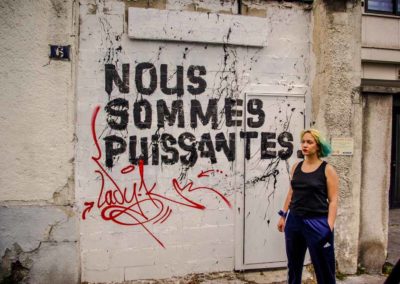 6
NOUS
SOMMES
PUISSANTES.
Lady.K